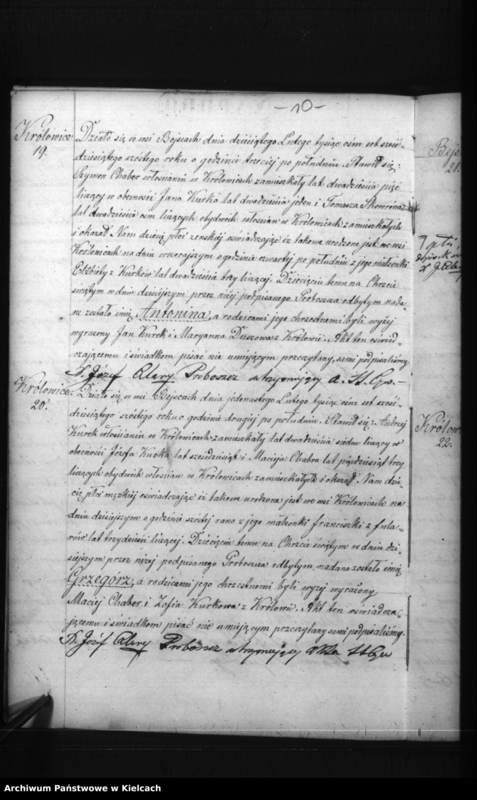 -10-
Królowice
19.
Działo się w wsi Bejscach dnia dziesiątego Lutego tysiąc ośm set sześć-
dziesiątego szóstego roku o godzinie trzeciej po południu. Stawił się
Szymon Chaber włościanin w Królowicach zamieszkały lat dwadzieścia pięć
liczący w obecności Jana Kurka lat dwadzieścia jeden i Tomasza
lat dwadzieścia ośm liczących obydwóch włościan w Królowicach zamieszkałych
i okazał Nam dziecię płci żeńskiej oświadczając iż takowe urodzone jest we wsi
Królowicach na dniu wczorajszym o godzinie czwartej po południu z jego małżonki
Elżbiety z Kurków lat dwadzieścia trzy liczącej. Dziecięciu temu na Chrzcie
świętym w dniu dzisiejszym przez niżej podpisanego Proboszcza odbytym nada-
ne zostało imię Antonina, a rodzicami jego chrzestnemi byli wyżej
wyrażony Jan Kurek i Maryanna z Królowic. Akt ten oświad-
czającemu i świadkom pisać nie umiejącym, przeczytany, sami podpisaliśmy
X Józef Proboszcz utrzymujący A. St. Cyw.
Królowice
20.
Działo się w wsi Bejscach dnia jedenastego Lutego tysiąc ośm set sześć-
dziesiątego szóstego roku o godzinie drugiej po południu. Stawił się Andrzej
Kurek włościanin w Królowicach zamieszkały lat dwadzieścia siedm liczący w
obecności Józefa Kurka lat sześćdziesiąt i Macieja Chabra lat pięćdziesiąt trzy
liczących obydwóch włościan w Królowicach zamieszkałych i okazał Nam dzie-
cię płci męzkiej oświadczając iż takowe urodzone jest we wsi Królowicach na
dniu dzisiejszym o godzinie szóstej rano z jego małżonki Franciszki z
lat trzydzieści liczącej. Dziecięciu temu na Chrzcie świętym w dniu dzi-
siejszym przez niżej podpisanego Proboszcza odbytym, nadane zostało imię
Grzegorz, a rodzicami jego chrzestnemi byli wyżej wyrażony
Maciej Chaber i Zofia Kurkowa z Królowic. Akt ten oświadcza-
jącemu i świadkom pisać nie umiejącym, przeczytany sami podpisaliśmy
X Józef Proboszcz utrzymujący Akta St Cyw
Bejs
21.
Królow
22.
Archiwum Państwowe w Kielcach